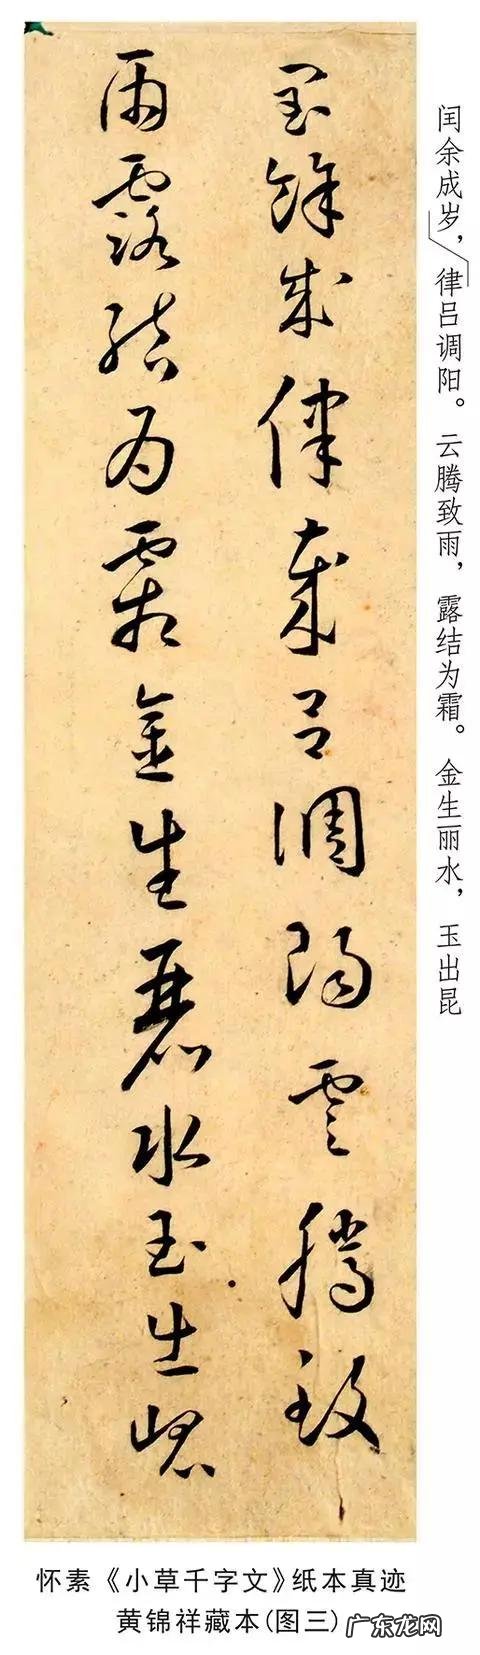 闰余成岁，律吕调阳。云腾致雨，露结为霜。金生丽水，玉出昆
閏餘成律歲吕調陽雲騰致
雨露結為霜金生麗水玉出崑
怀素《小草千字文》纸本真迹
黄锦祥藏本(图三)
广东龙网